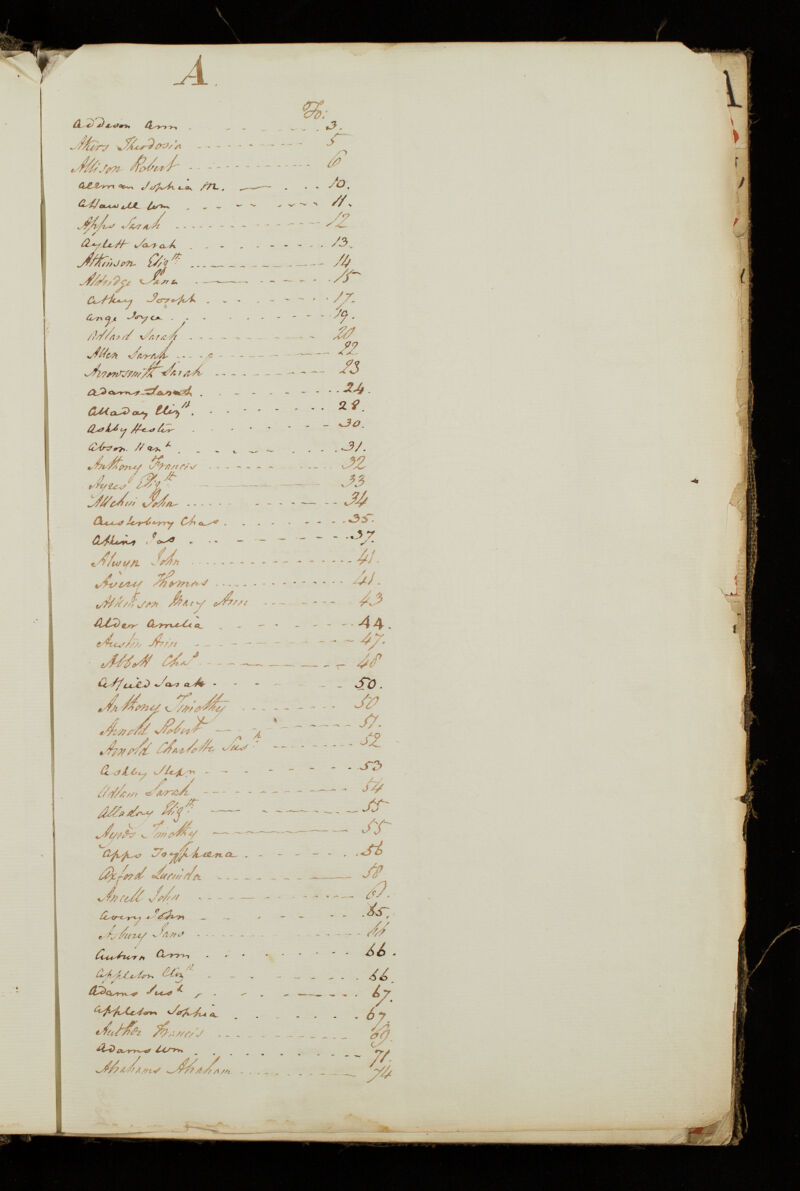 A.
Fo:
Addison Ann 3.
Akers Theodosia 5
Allison Robert 6
Allman Sophia M. 10.
Attawell Wm 11.
Apps Sarah 12
Aylett Sarah 13.
Atkinson Elizth. 14
Aldridge Jana 15
Athey Joseph 17.
Ange Joyce 19.
Adlard Sarah 20
Allen Sarah 22
Arrowsmith Sarah 23
Adams Sarah 24.
Alladay Elizth. 28.
Ashby Hester 30.
Abson Hanh. 31.
Anthony Francis 32
Ayres Elizth 33
John 34
Austerberry Chas. 35.
Atkins Jas 37.
Alwyn John 41.
Avery Thomas 41.
Atkinson Mary Ann 43
Alder Amelia 44.
Austin Ann 47.
Abbott Chas 48
Atfield Sarah 50.
Anthony Timothy 50
Arnold Robert 51.
Arnold Charlotte Susn. 52
Ashby Stepn 53
Adlam Sarah 54
Alladay Elizth: 55
Ayres Timothy 55
Apps Tryphena 56
Oxford Lucinda 58
Ancell John
Avery John 65.
Asbury Jane 66
Auburn Ann 66.
Appleton Elizth 66.
Adams Sush 67.
Appleton Sophia 67
Author Francis 69.
Adams Wm 71.
Abrahams Abraham 74
A